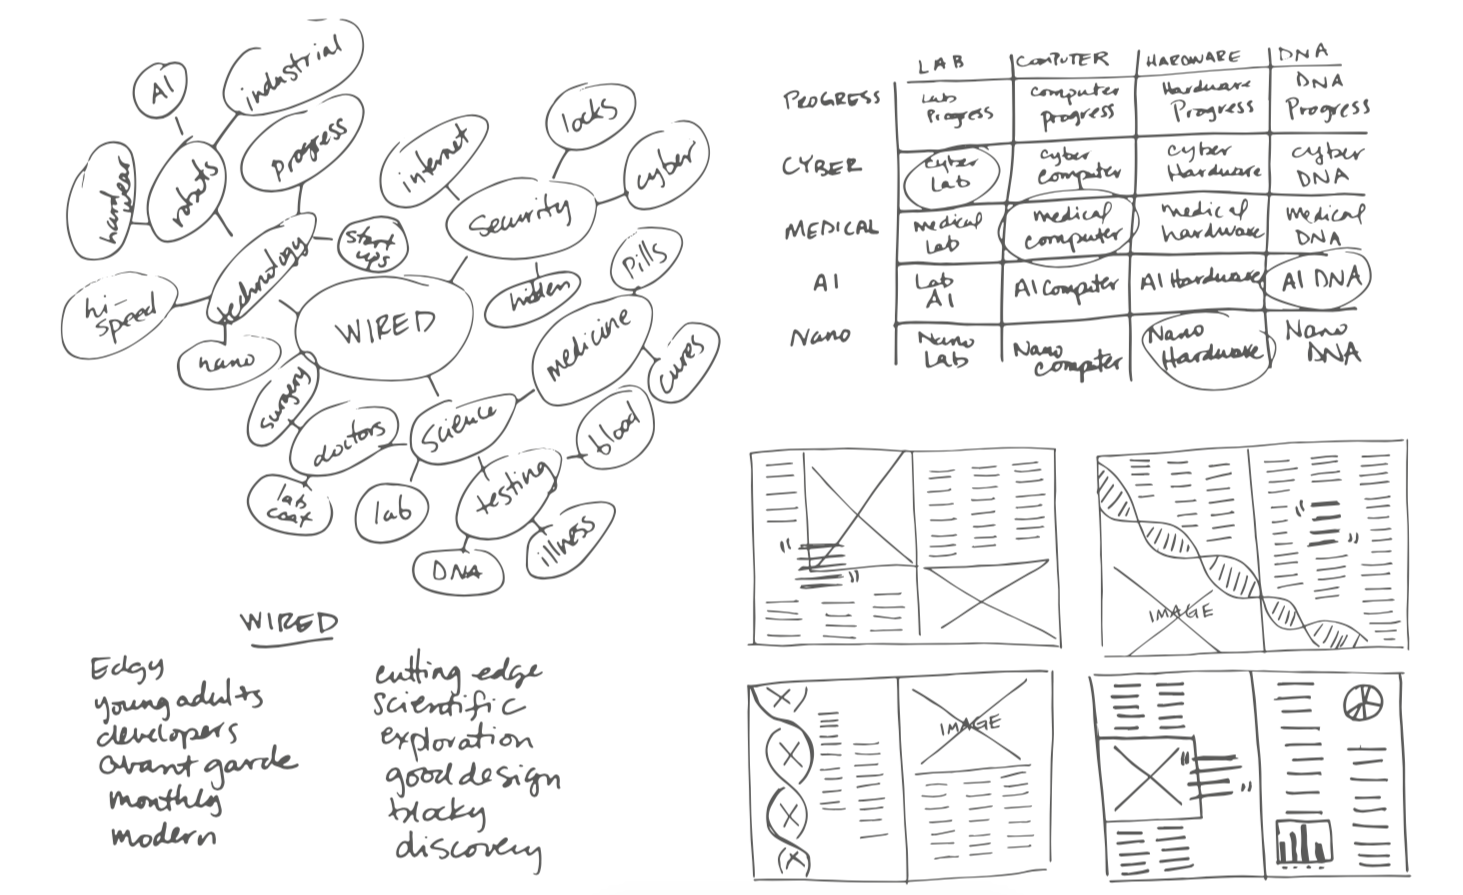 AI
industrial
Progress
hardwear
robots
technology
start
ups
hi-
speed
nano
WIRED
internet
locks
Security
cyber
hidden
Pills
medicine
cures
surgery
doctors
Science
blood
lab
coat
lab
testing
illness
DNA
LAB
COMPUTER
HARDWARE
DNA
PROGRESS
Lab
Progress
computer
progress
Hardware
Progress
DNA
Progress
CYBER
cyber
Lab
cyber
computer
cyber
Hardware
cyber
DNA
MEDICAL
medical
Lab
medical
computer
medical
hardware
medical
DNA
AI
Lab
AI
AI Computer
AI Hardware
AI DNA
Nano
Nano
Lab
Nano
computer
Nano
Hardware
Nano
DNA
WIRED
Edgy
young adults
developers
avant garde
monthly
modern
cutting edge
scientific
exploration
good design
blocky
discovery
" "
IMAGE
" "
IMAGE
" "